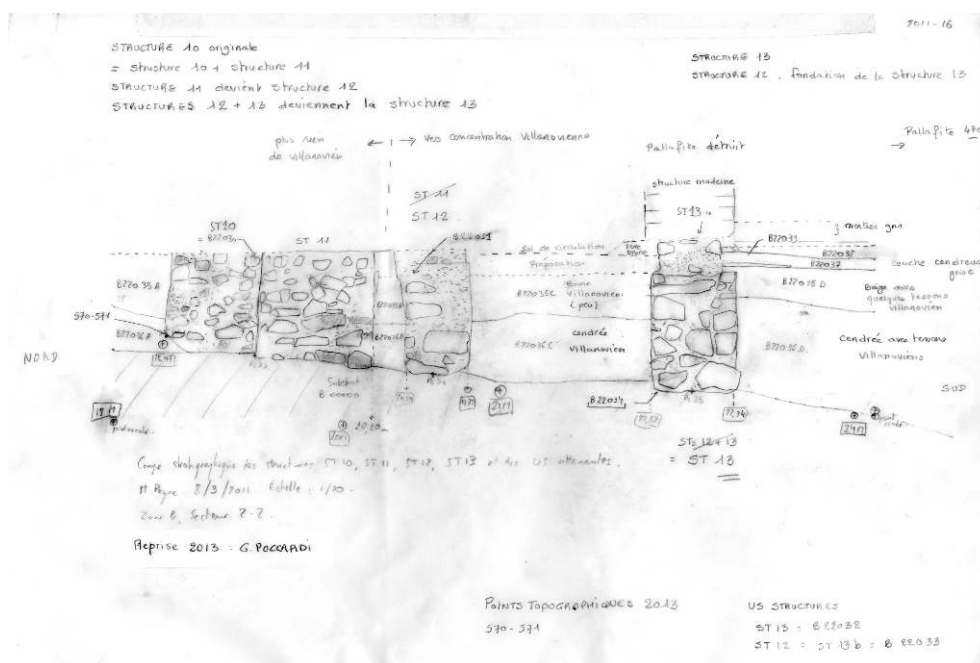 2011-16
STRUCTURE 10 originale
= structure 10 + structure 11
STRUCTURE 11 devient structure 12
STRUCTURES 12 + 13 deviennent la structure 13
STRUCTURE 13
STRUCTURE 12, fondation de la structure 13
plus rien
de villanovien
← → vers concentration villanovienne
Pallafite détruit
Pallafite
→
structure moderne
ST 11
ST 12
ST10
= B22030
ST 11
B22031
ST13
Sol de circulation
Préparation
mortier gris
B22035A
B22036A
570-571
B22035C
Brune
Villanovien
(peu)
B22036C
cendré
villanovien
B22037
couche cendreuse
grise
B22035D
Beige avec
quelques tessons
villanovien
B22036D
Cendrée avec tessons
Villanoviens
NORD
SUD
Substrat
B00000
20,20
B22034
ST 12 + 13
= ST 13
Coupe stratigraphique des structures ST 10, ST 11, ST 12, ST 13 et des US attenantes.
M Peyre 8/3/2011 Échelle : 1/20.
Zone B, Secteur 2-2.
Reprise 2013 : G. POCCARDI
POINTS TOPOGRAPHIQUES 2013
570-571
US STRUCTURES
ST 13 = B22032
ST 12 = ST 13b = B 22033